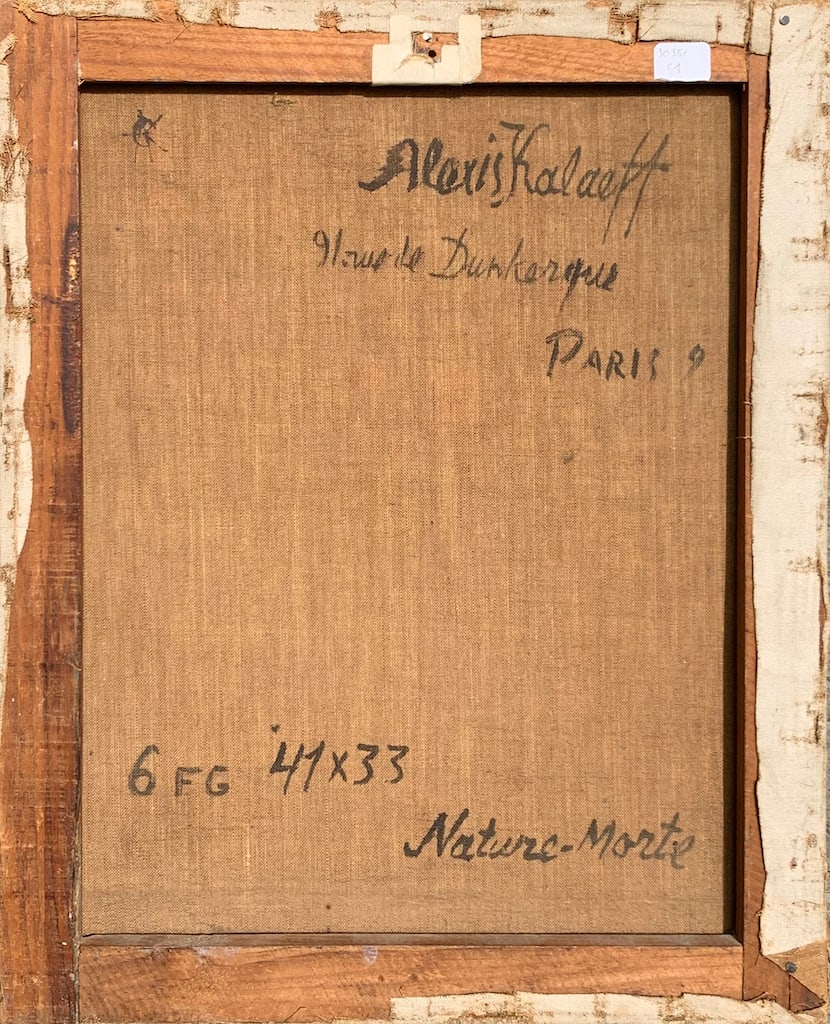 30351
51
Alexis Kalaeff
91. rue de Dunkerque
PARIS 9
6 FG 41x33
Nature-Morte